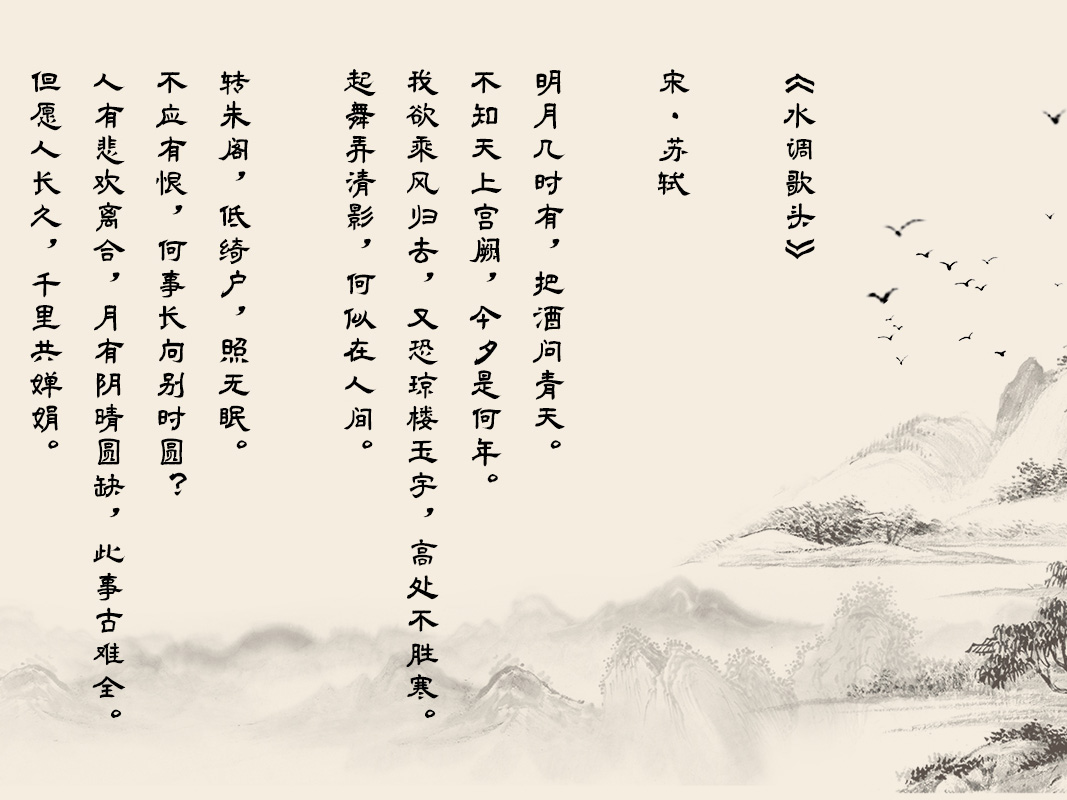 《水调歌头》
宋·苏轼
明月几时有，把酒问青天。
不知天上宫阙，今夕是何年。
我欲乘风归去，又恐琼楼玉宇，高处不胜寒。
起舞弄清影，何似在人间。
转朱阁，低绮户，照无眠。
不应有恨，何事长向别时圆？
人有悲欢离合，月有阴晴圆缺，此事古难全。
但愿人长久，千里共婵娟。